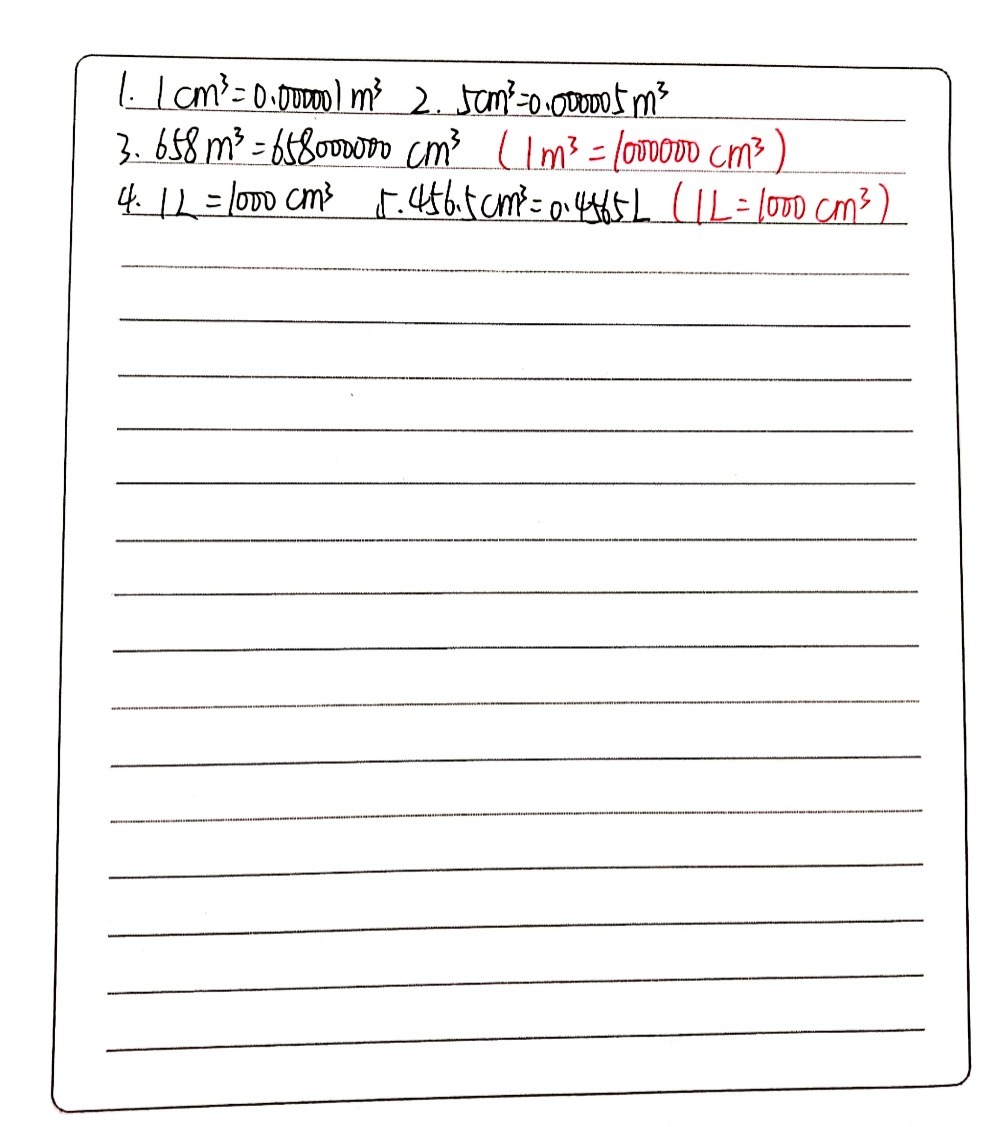 1. 1cm³=0.000001m³ 2. 5cm³=0.000005m³
3. 658m³=658000000 cm³ (1m³=1000000 cm³)
4. 1L=1000 cm³ 5. 456.5cm³=0.4565L (1L=1000 cm³)